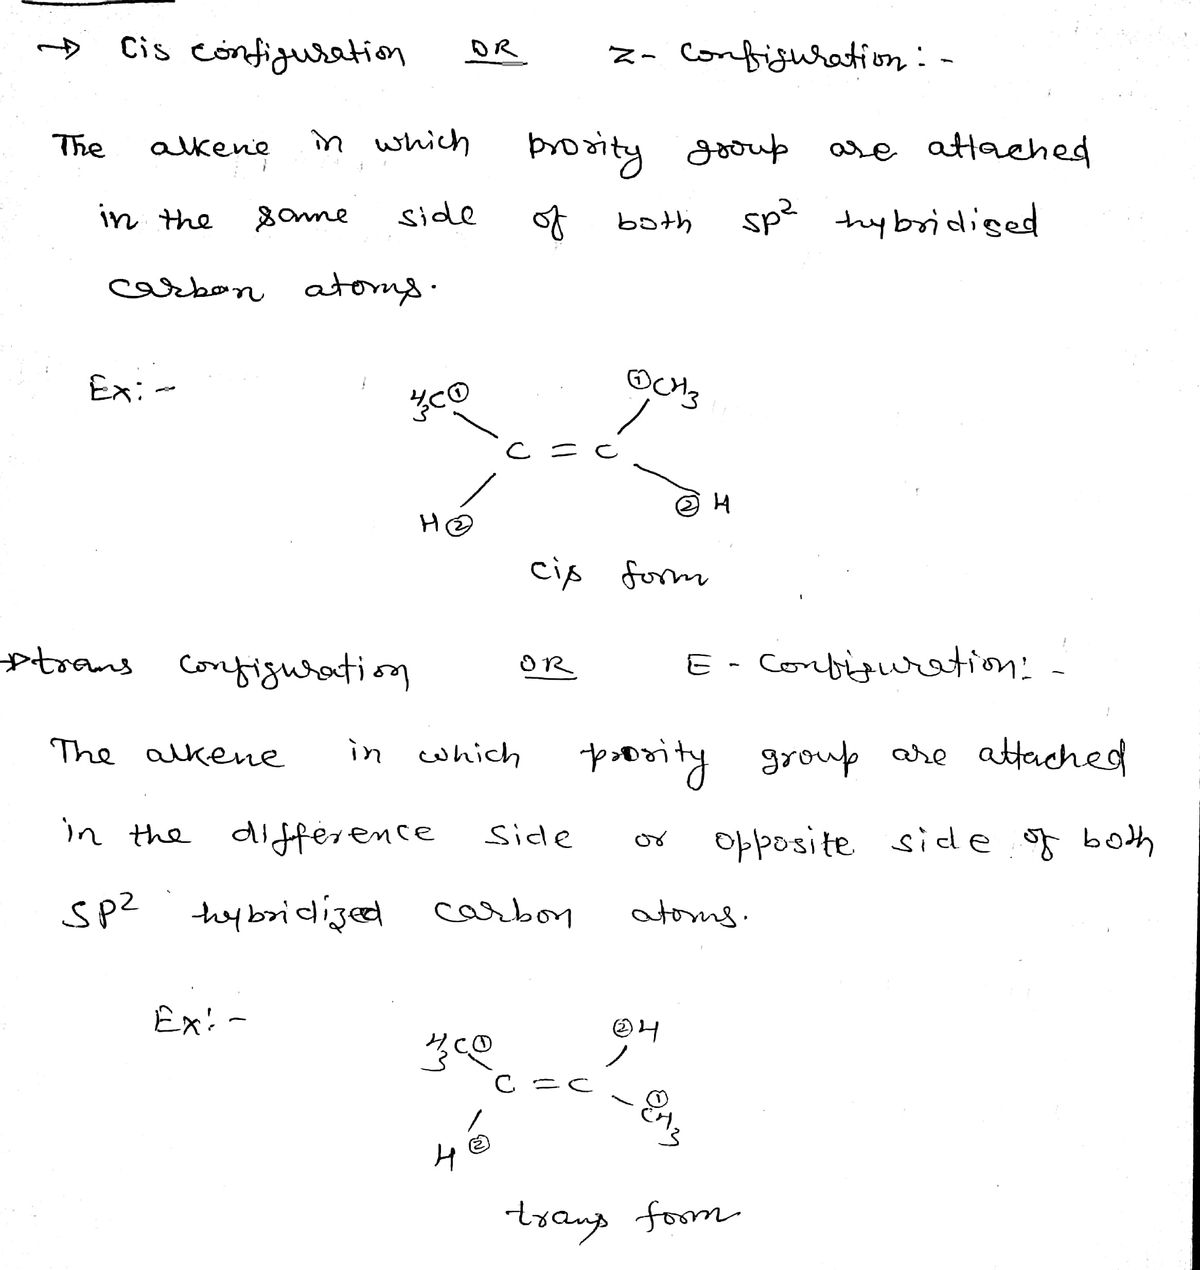 → Cis configuration OR Z- Configuration:-
The alkene in which prority group are attached
in the same side of both sp² hybridised
carbon atoms.
Ex:-
H₃C① ①CH₃
C = C
H② ② H
cis form
→ trans configuration OR E - Configuration:-
The alkene in which prority group are attached
in the difference side or opposite side of both
SP² hybridized carbon atoms.
Ex:-
H₃C① ②H
C = C
①
CH₃
H ②
trans form